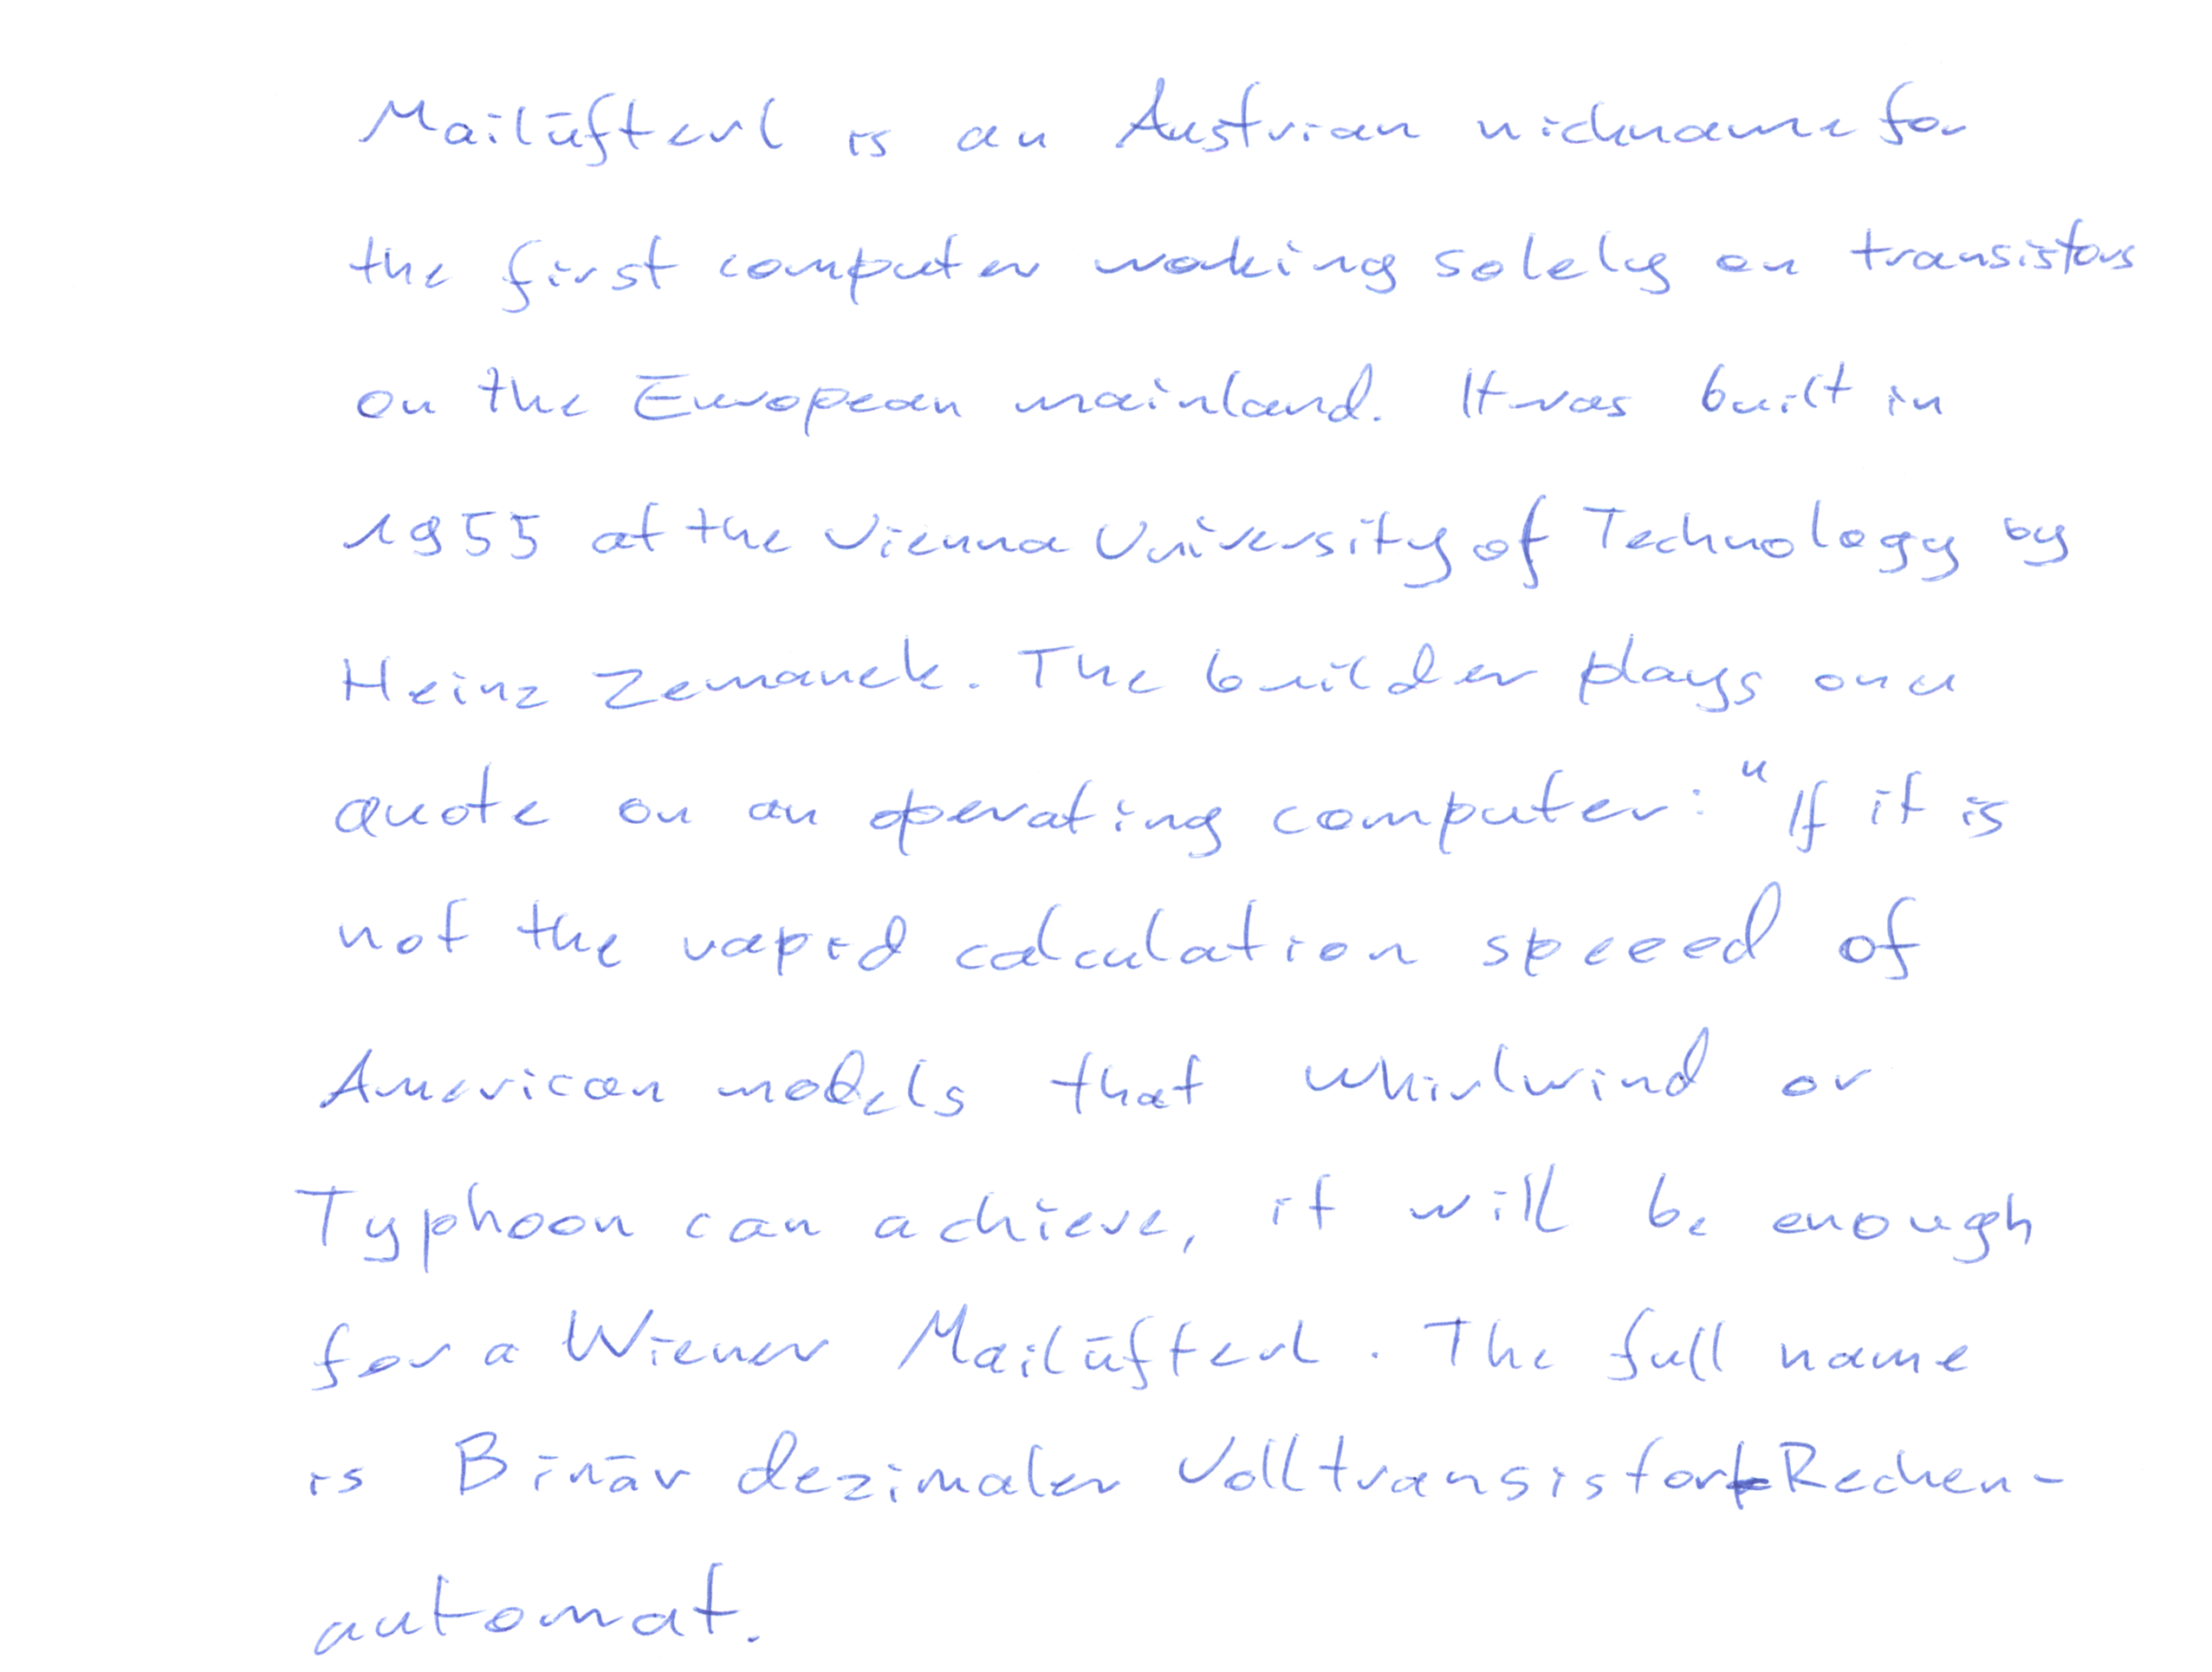 Mailüfterl is an Austrian nickname for
the first computer working solely on transistors
on the European mainland. It was built in
1955 at the Vienna University of Technology by
Heinz Zemanek. The builder plays on a
quote on an operating computer: "If it is
not the rapid calculation speeed of
American models that Whirlwind or
Typhoon can achieve, it will be enough
for a Wiener Mailüfterl. The full name
is Binär dezimaler Volltransistor-Rechen-
automat.